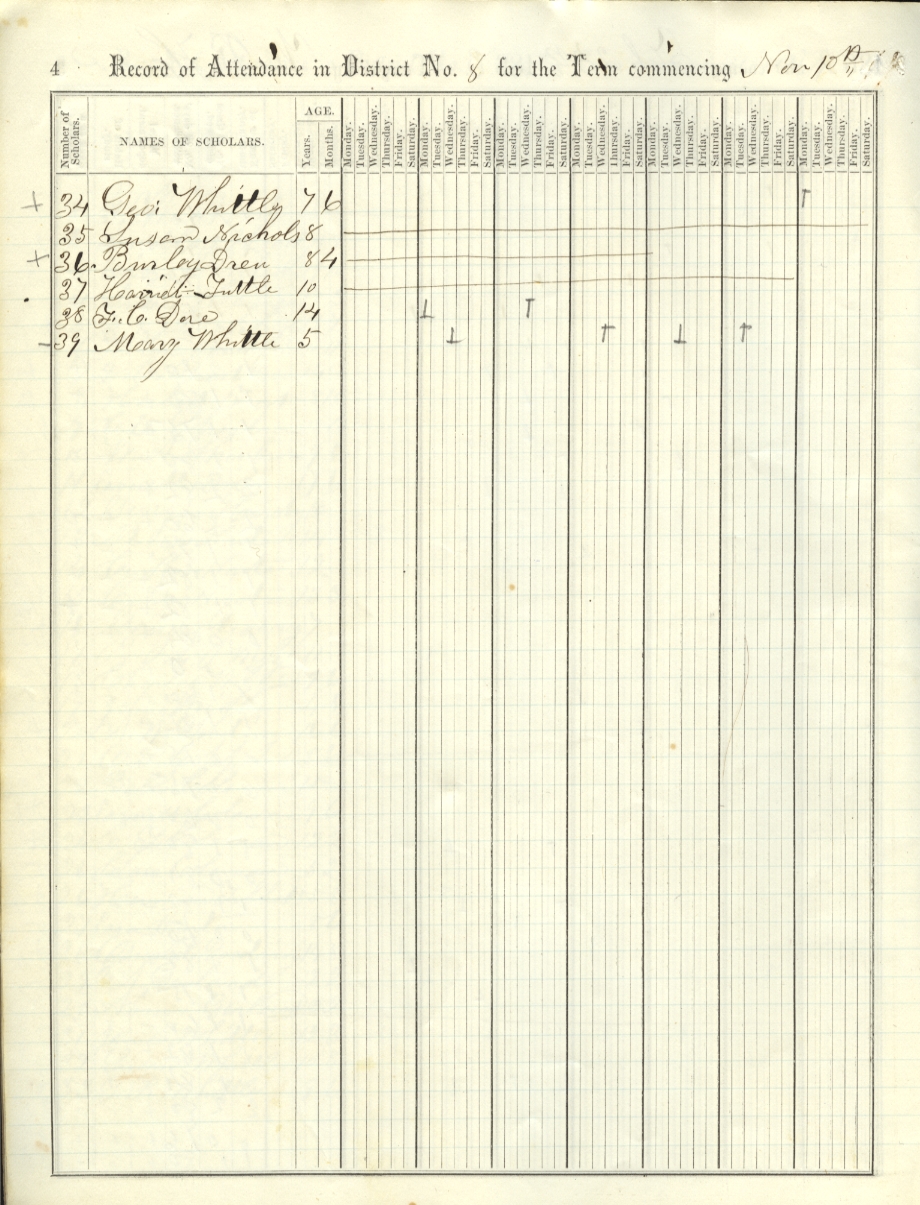 4 Record of Attendance in District No. 8 for the Term commencing Nov 10th
Number of Scholars. NAMES OF SCHOLARS. AGE. Years. Months. Monday. Tuesday. Wednesday. Thursday. Friday. Saturday. Monday. Tuesday. Wednesday. Thursday. Friday. Saturday. Monday. Tuesday. Wednesday. Thursday. Friday. Saturday. Monday. Tuesday. Wednesday. Thursday. Friday. Saturday. Monday. Tuesday. Wednesday. Thursday. Friday. Saturday. Monday. Tuesday. Wednesday. Thursday. Friday. Saturday. Monday. Tuesday. Wednesday. Thursday. Friday. Saturday.
+ 34 Geo. Whittle 7 6
35 Susan Nichols 8
+ 36 Burley Drew 8 4
37 Harriet Tuttle 10
38 F. C. Dore 14
39 Mary Whittle 5